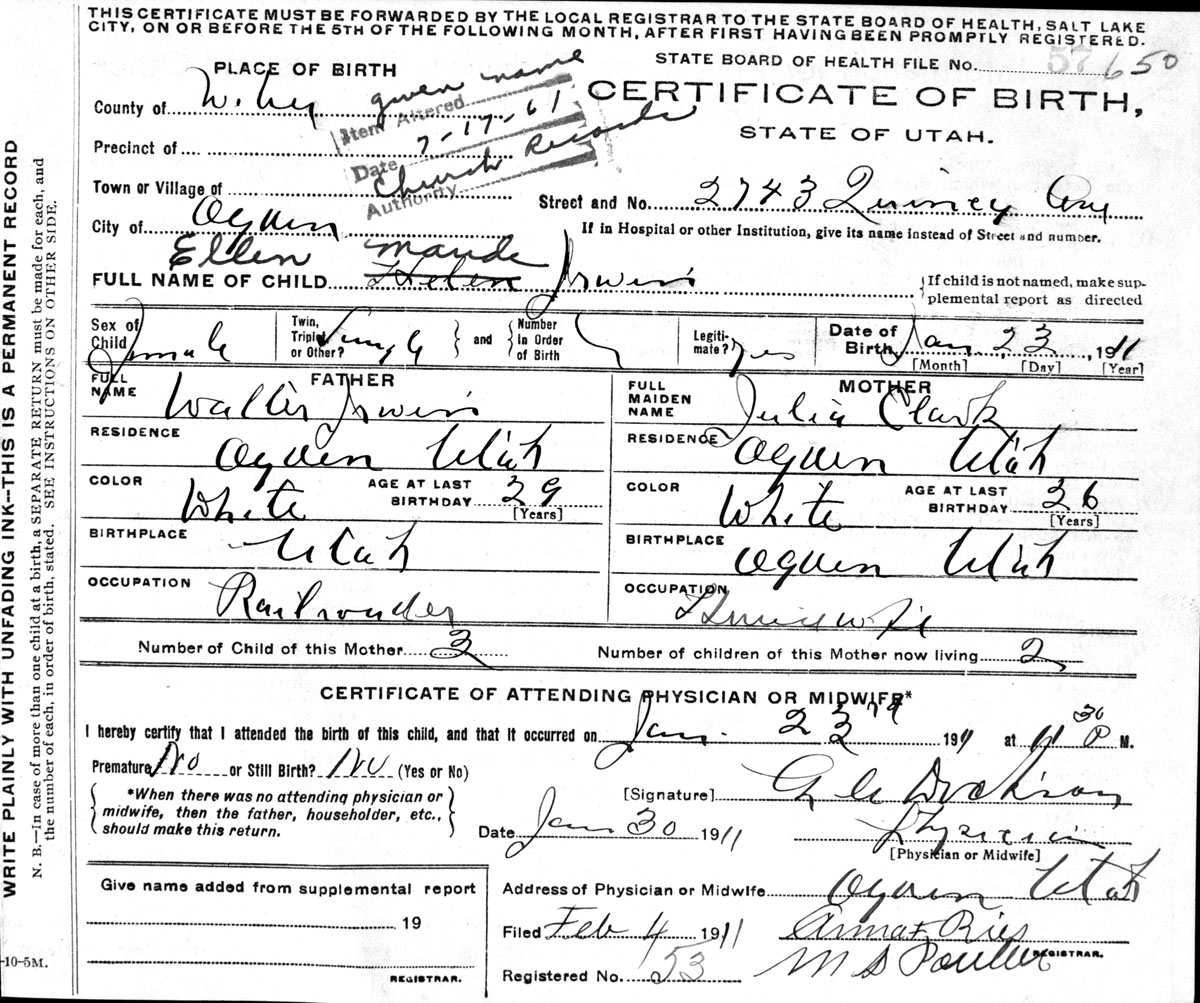 THIS CERTIFICATE MUST BE FORWARDED BY THE LOCAL REGISTRAR TO THE STATE BOARD OF HEALTH, SALT LAKE
CITY, ON OR BEFORE THE 5TH OF THE FOLLOWING MONTH, AFTER FIRST HAVING BEEN PROMPTLY REGISTERED.
STATE BOARD OF HEALTH FILE NO. 57 650
PLACE OF BIRTH
CERTIFICATE OF BIRTH,
STATE OF UTAH.
County of
given name
Item Altered
Precinct of
7-17-61
Date
Church Records
Authority
Town or Village of
Street and No. 2743 Quincy Ave
City of Ogden
If in Hospital or other Institution, give its name instead of Street and number.
Ellen Maude
FULL NAME OF CHILD Helen Irwin
If child is not named, make sup-
plemental report as directed
Sex of Child Female
Twin, Triplet or Other? Single
and
Number in Order of Birth
Legiti-mate? yes
Date of Birth Jan 23, 1911
[Month] [Day] [Year]
FATHER
FULL NAME Walter Irwin
RESIDENCE Ogden Utah
COLOR White
AGE AT LAST BIRTHDAY 29
[Years]
BIRTHPLACE Utah
OCCUPATION Railroader
MOTHER
FULL MAIDEN NAME Julia Clark
RESIDENCE Ogden Utah
COLOR White
AGE AT LAST BIRTHDAY 26
[Years]
BIRTHPLACE Ogden Utah
OCCUPATION Housewife
Number of Child of this Mother 3
Number of children of this Mother now living 2
CERTIFICATE OF ATTENDING PHYSICIAN OR MIDWIFE*
I hereby certify that I attended the birth of this child, and that it occurred on Jan. 23rd 1911 at 11 30 P M.
Premature No or Still Birth? No (Yes or No)
*When there was no attending physician or
midwife, then the father, householder, etc.,
should make this return.
[Signature]
Date Jan 30 1911
Physician
[Physician or Midwife]
Give name added from supplemental report
19
REGISTRAR.
Address of Physician or Midwife Ogden Utah
Filed Feb 4 1911
Anna F Ries
Registered No. 53
M S Poulter
REGISTRAR.
WRITE PLAINLY WITH UNFADING INK--THIS IS A PERMANENT RECORD
N. B.—In case of more than one child at a birth, a SEPARATE RETURN must be made for each, and
the number of each, in order of birth, stated. SEE INSTRUCTIONS ON OTHER SIDE.
-10-5M.